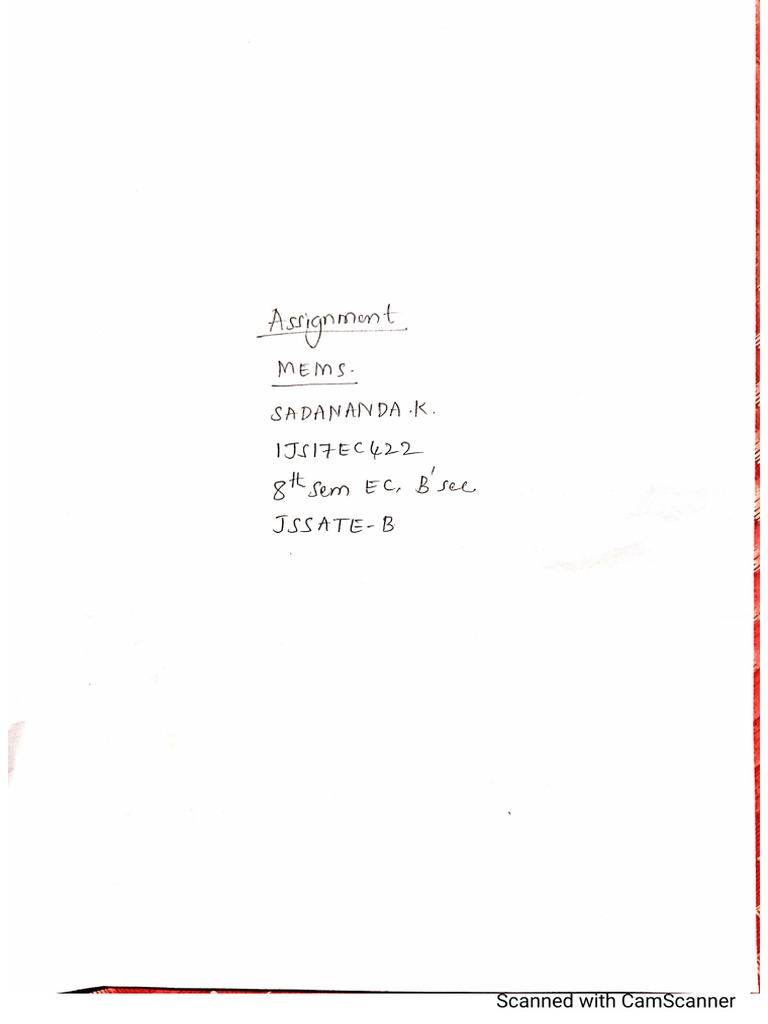 Assignment
MEMS.
SADANANDA.K.
1JS17EC422
8th sem EC, B'sec
JSSATE-B
Scanned with CamScanner